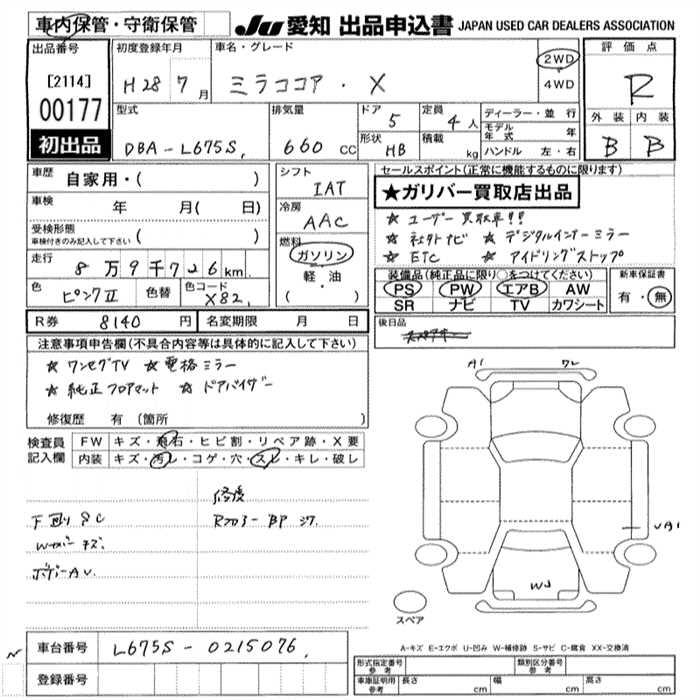 車内保管・守衛保管
JU 愛知 出品申込書 JAPAN USED CAR DEALERS ASSOCIATION
出品番号 初度登録年月 車名・グレード 評価点
[2114] H28 7月 ミラココア・X 2WD R
00177 4WD
型式 排気量 ドア 定員 ディーラー・並行 外装 内装
初出品 DBA-L675S 660CC 5 4人 モデル年式 年 B B
形状 HB 積載 kg ハンドル 左・右
車歴 自家用・( ) シフト IAT セールスポイント(正常に機能するものに限ります)
★ガリバー買取店出品
車検 年 月( 日) 冷房 AAC ☆ ユーザー買取車!!
受検形態 車検付きのみ記入して下さい ( ) ☆ 社外ナビ ☆ デジタルインナーミラー
燃料 ガソリン ☆ ETC ☆ アイドリングストップ
走行 8万9千726km 軽・油 ( )
装備品(純正品に限り○をつけてください) 新車保証書
PS PW エアB AW 有・無
SR ナビ TV カワシート
色 ピンクII 色替 色コード X82
R券 8140円 名変期限 月 日 後日品
注意事項申告欄(不具合内容等は具体的に記入して下さい)
☆ ワンセグTV ☆ 電格ミラー
☆ 純正フロアマット ☆ ドアバイザー
修復歴 有(箇所 )
A1
検査員記入欄 FW キズ・飛石・ヒビ割・リペア跡・X要
内装 キズ・汚レ・コゲ・穴・スレ・キレ・破レ
修復
下廻りSC
キズ
ボデーAU
WU
スペア
A-キズ E-エクボ U-凹み W-補修跡 S-サビ C-腐食 XX-交換済
車台番号 L675S-0215076
登録番号
形式指定番号 参考 類別区分番号 参考
車庫証明用 参考 長さ cm 幅 cm 高さ cm